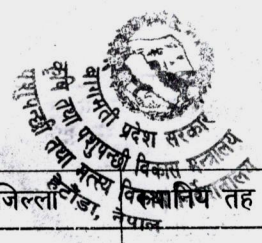 बागमती प्रदेश सरकार
कृषि तथा पशुपन्छी विकास मन्त्रालय
पशुपन्छी तथा मत्स्य विकास
हेटौंडा, नेपाल
जिल्ला
स्थानिय तह